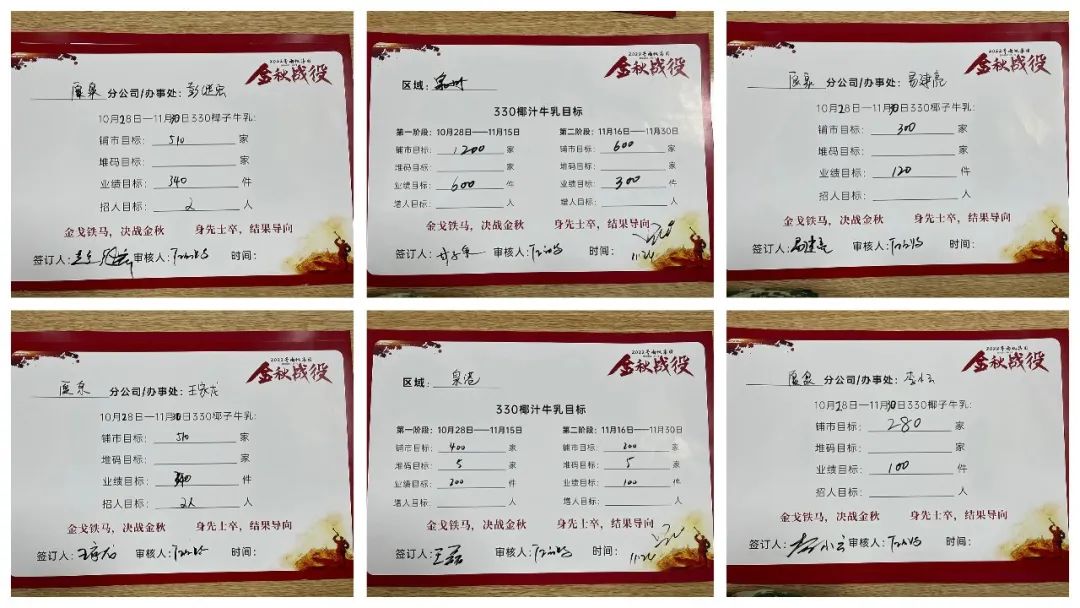 2022粤海饮集团
金秋战役
厦泉 分公司/办事处: 彭进宏
10月28日—11月30日330椰子牛乳:
铺市目标: 510 家
堆码目标: 家
业绩目标: 340 件
招人目标: 2 人
金戈铁马，决战金秋 身先士卒，结果导向
签订人: 审核人: 时间:
金秋战役
区域: 泉州
330椰汁牛乳目标
第一阶段: 10月28日——11月15日 第二阶段: 11月16日——11月30日
铺市目标: 1200 家 铺市目标: 600 家
堆码目标: 家 堆码目标: 家
业绩目标: 600 件 业绩目标: 300 件
增人目标: 人 增人目标: 人
金戈铁马，决战金秋 身先士卒，结果导向
签订人: 审核人: 时间:
金秋战役
厦泉 分公司/办事处: 易建亮
10月28日—11月30日330椰子牛乳:
铺市目标: 300 家
堆码目标: 家
业绩目标: 120 件
招人目标: 人
金戈铁马，决战金秋 身先士卒，结果导向
签订人: 易建亮 审核人: 时间:
金秋战役
厦泉 分公司/办事处: 王家龙
10月28日—11月30日330椰子牛乳:
铺市目标: 510 家
堆码目标: 家
业绩目标: 340 件
招人目标: 2人 人
金戈铁马，决战金秋 身先士卒，结果导向
签订人: 王家龙 审核人: 时间:
金秋战役
区域: 泉港
330椰汁牛乳目标
第一阶段: 10月28日——11月15日 第二阶段: 11月16日——11月30日
铺市目标: 400 家 铺市目标: 200 家
堆码目标: 5 家 堆码目标: 5 家
业绩目标: 200 件 业绩目标: 100 件
增人目标: 人 增人目标: 人
金戈铁马，决战金秋 身先士卒，结果导向
签订人: 王磊 审核人: 时间:
金秋战役
厦泉 分公司/办事处: 李小云
10月28日—11月30日330椰子牛乳:
铺市目标: 280 家
堆码目标: 家
业绩目标: 100 件
招人目标: 人
金戈铁马，决战金秋 身先士卒，结果导向
签订人: 李小云 审核人: 时间: